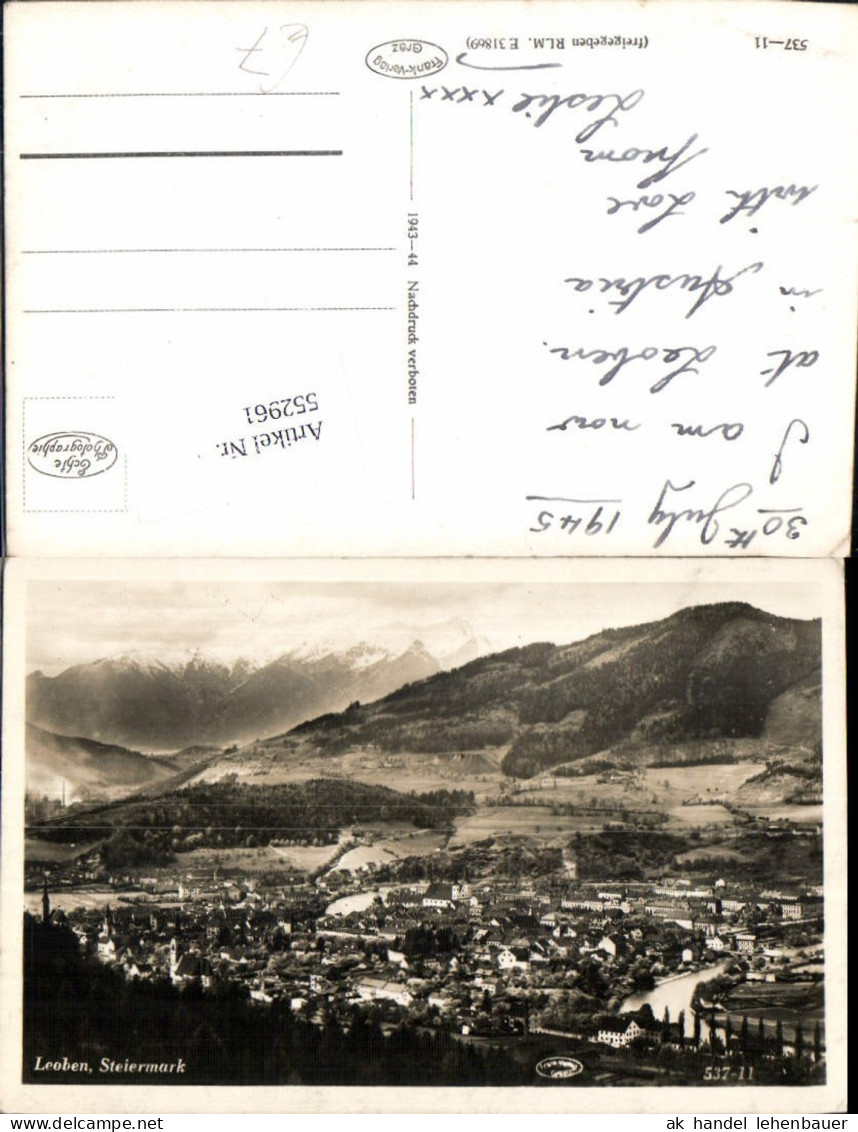 30th July 1945
I am now
at Leoben.
in Austria
with Love
from
Leslie xxxx
537—11
(freigegeben RLM. E 31869)
Frank-Verlag
Graz
1943—44 Nachdruck verboten
Artikel Nr.
552961
Echte
Photographie
Leoben, Steiermark
537-11
ak handel lehenbauer